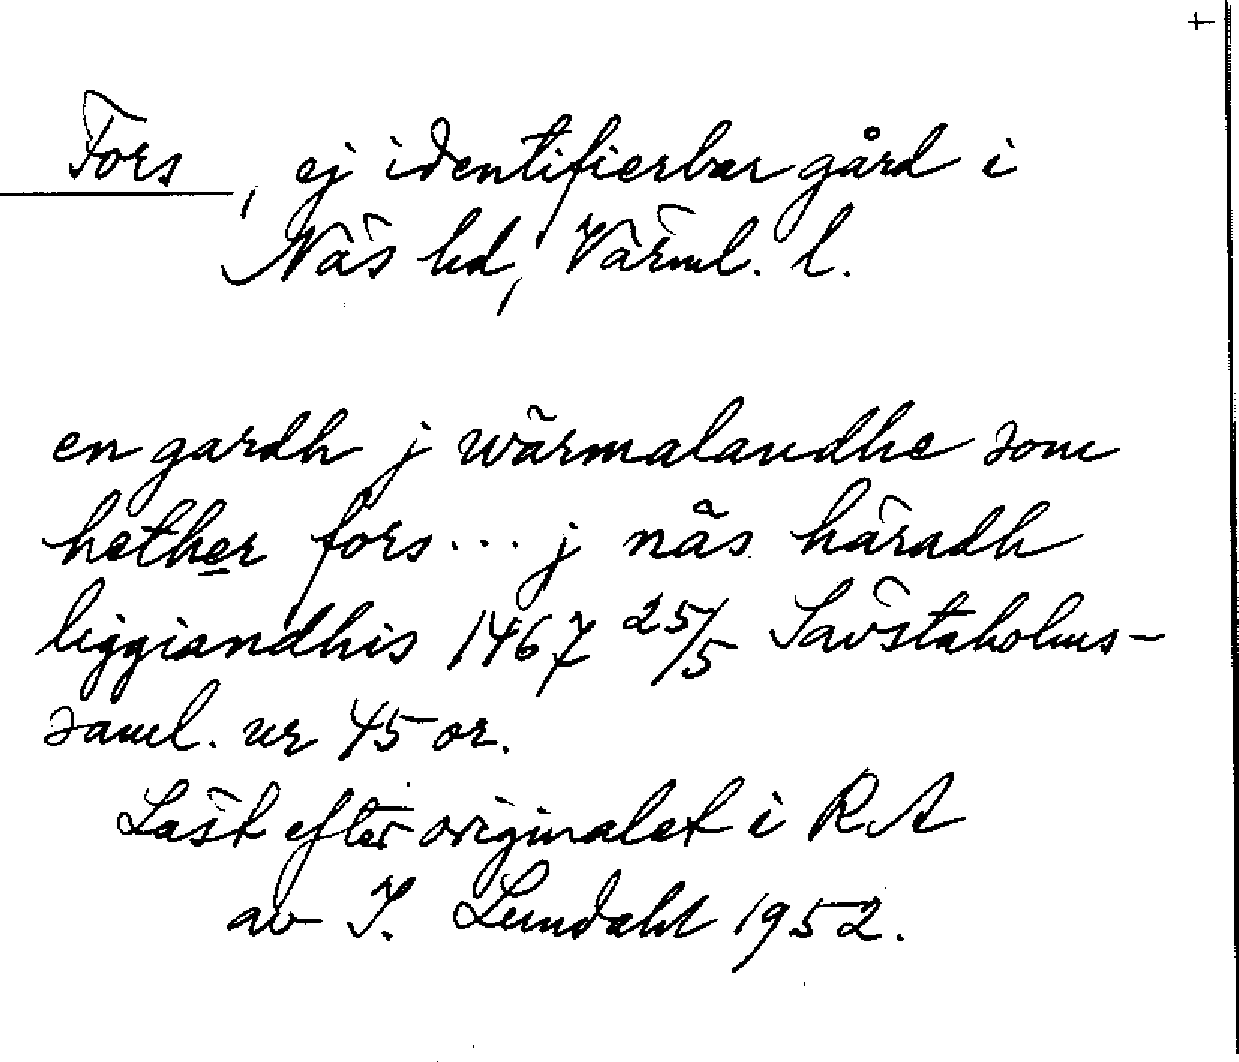 †
Fors, ej identifierbar gård i
Näs hd, Värml. l.
en gardh j wärmalandhe som
hether fors... j näs häradh
liggiandhis 1467 25/5 Sävstaholms-
saml. nr 45 or.
Läst efter originalet i RA
av I. Lundahl 1952.